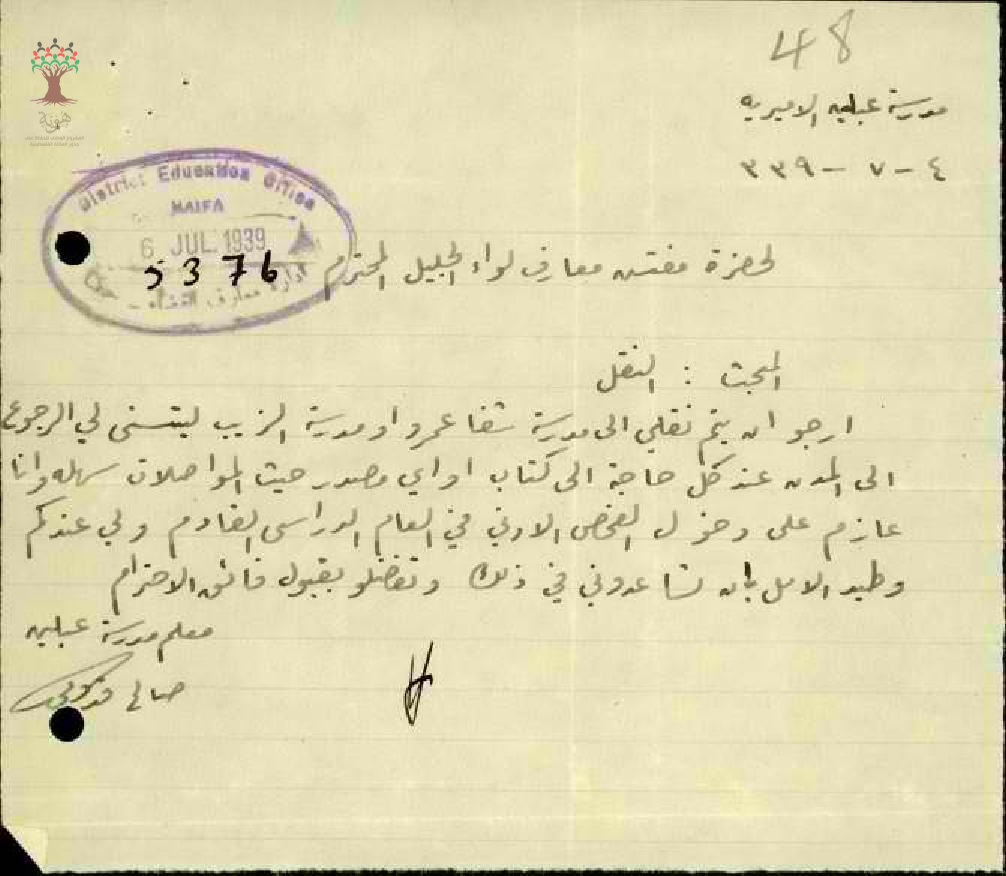 48
مدرسة عبلين الاميريه
٤ - ٧ - ٣٣٩
District Education Office
HAIFA
6 JUL 1939
5376
ادارة معارف القضاء - حيفا
لحضرة مفتش معارف لواء الجليل المحترم
المبحث : النقل
ارجو ان يتم نقلي الى مدرسة شفا عمرو او مدرسة الزيب ليتسنى لي الرجوع
الى المدن عند كل حاجة الى كتاب او اي مصدر حيث المواصلات سهله وانا
عازم على دخول الفحص الادنى في العام الدراسي القادم ولي عندكم
وطيد الامل بان تساعدوني في ذلك وتفضلو بقبول فائق الاحترام
معلم مدرسة عبلين
صالح
هوية